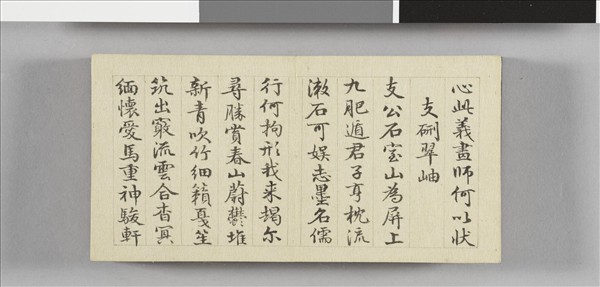 心此義畫師何以狀
支硎翠岫
支公石室山為屏上
九肥遁君子亨枕流
漱石可娱志墨名儒
行何拘形我来揭尓
尋勝賞春山蔚鬱堆
新青吹竹細籟戛笙
筑出窾流雲合杳冥
緬懷愛馬重神駿軒